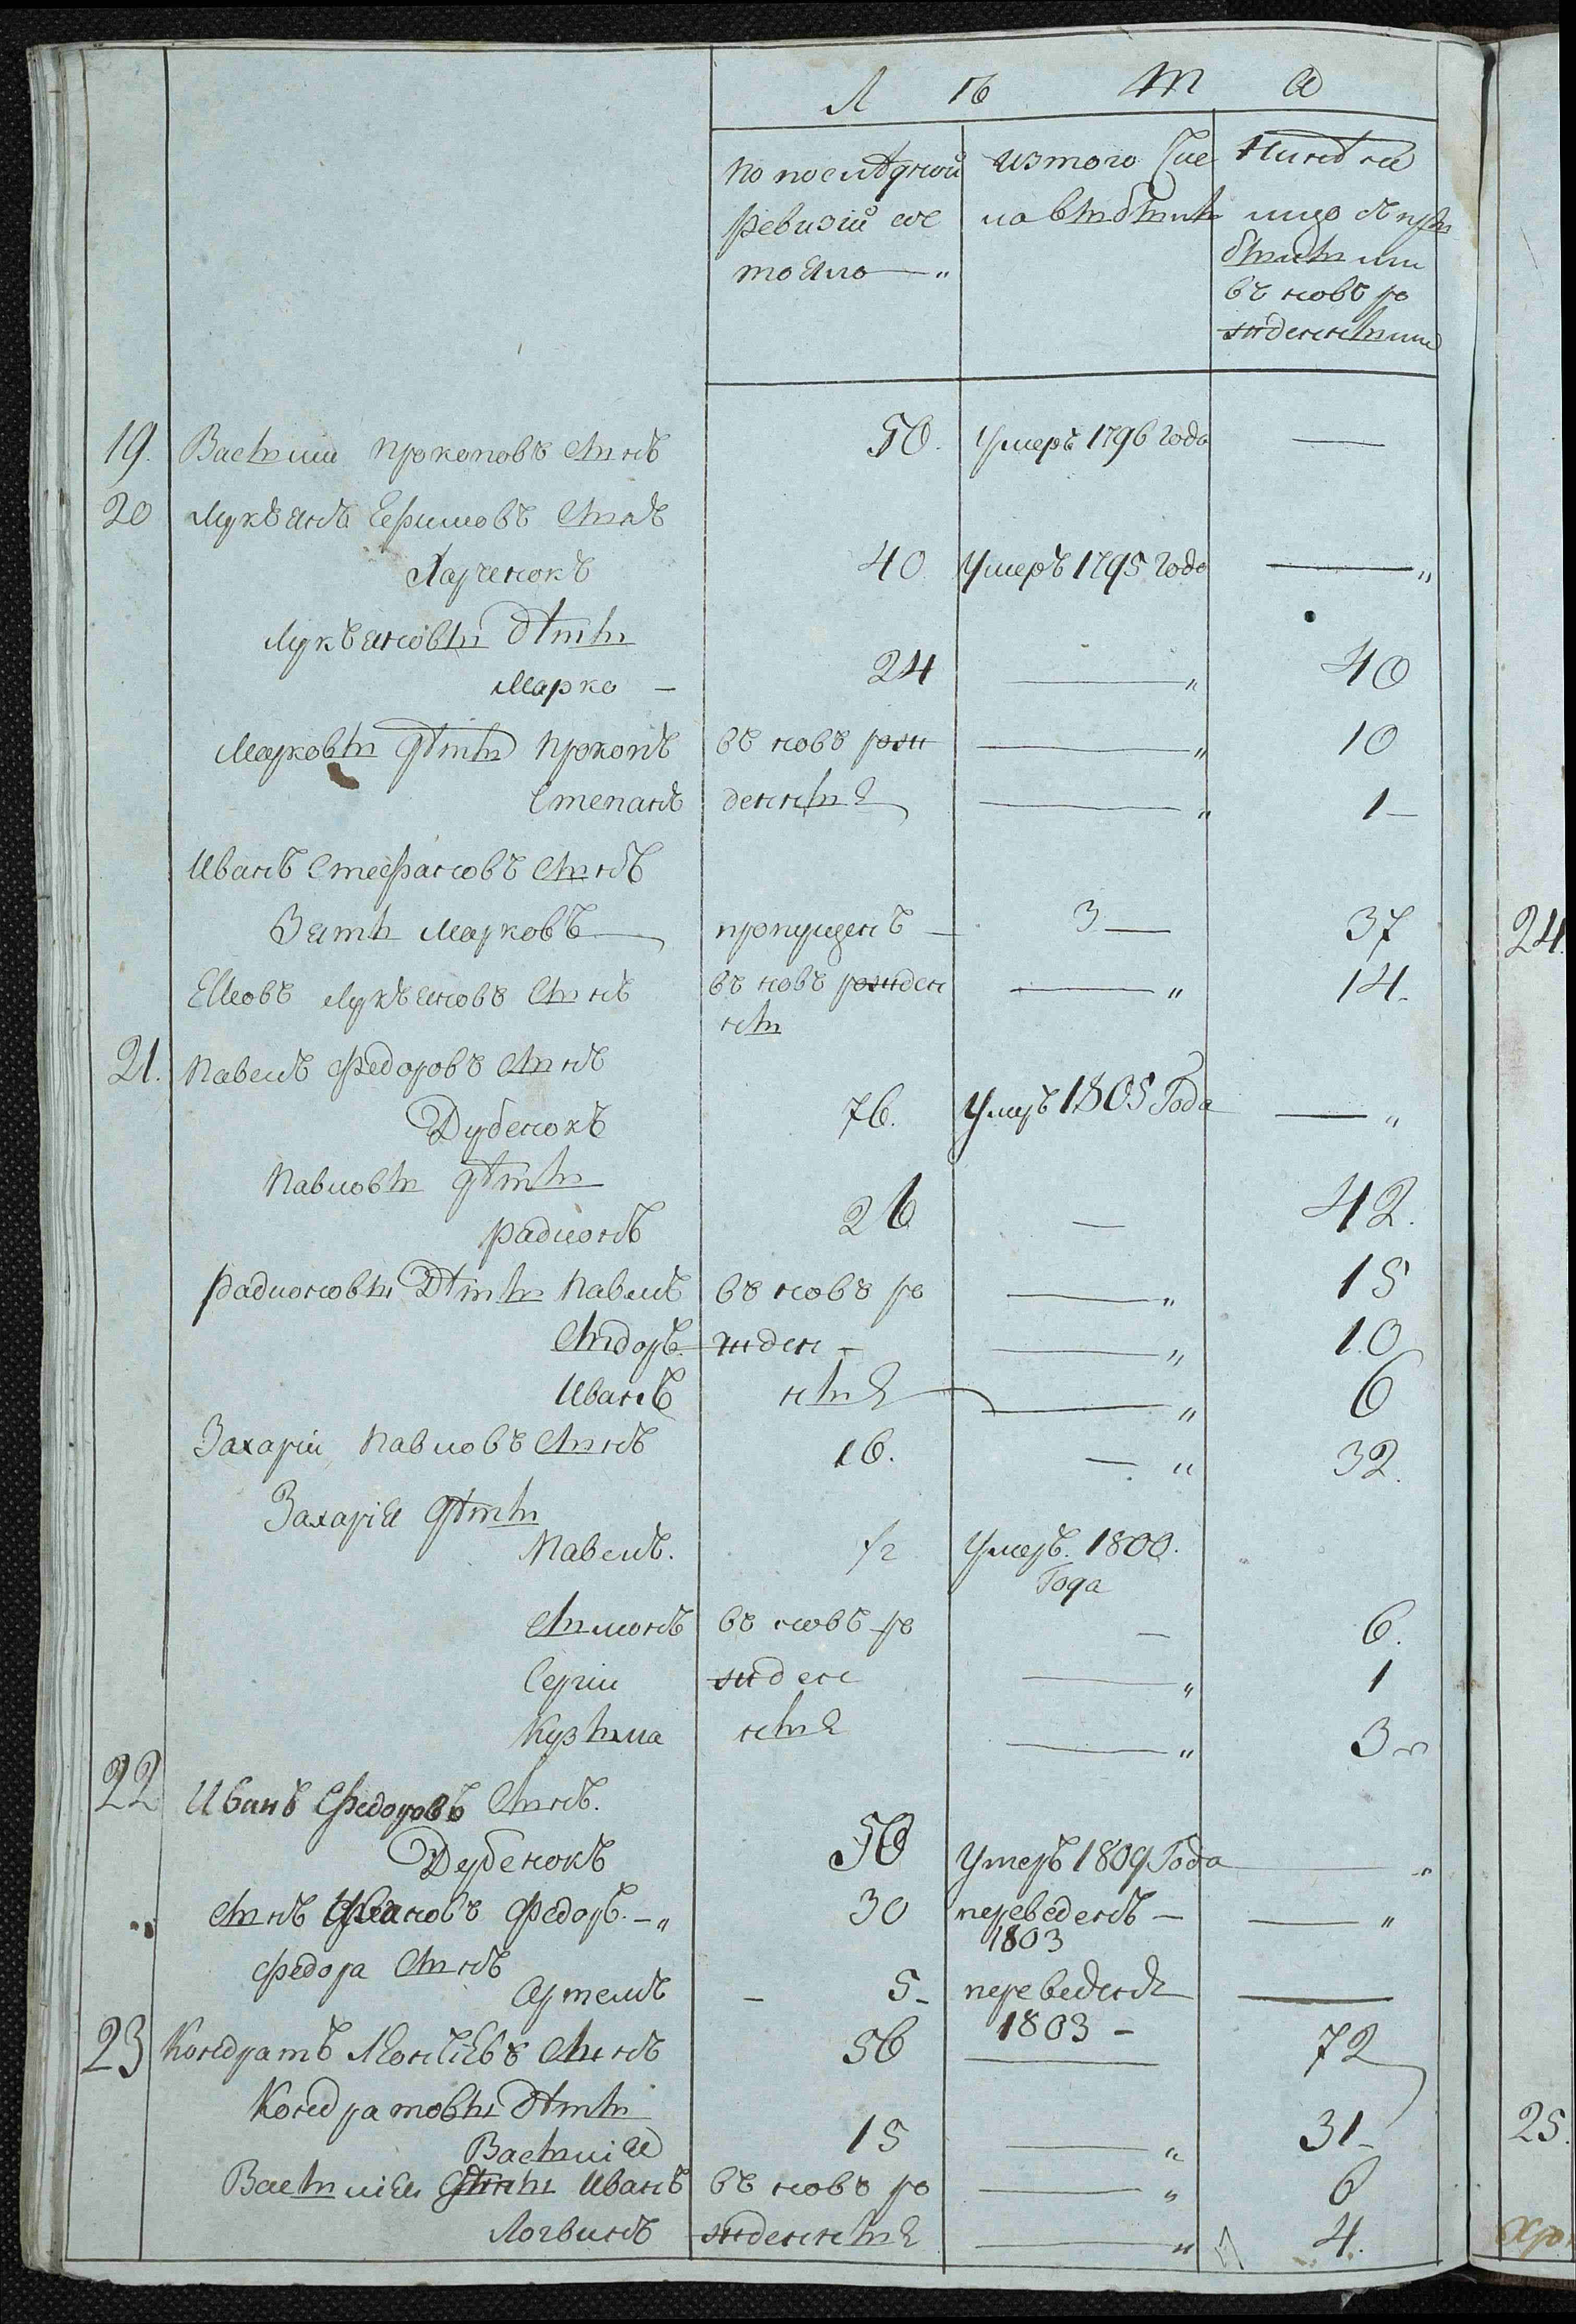 Л ѣ т а
По последней ревизіи состояло — „
Изъ того числа выбыли
Нынѣ на лицо съ прибылыми въ новь рожденными
19. Василий Прокоповъ сынъ 50. Умеръ 1796 года —
20 Лукъянъ Ефимовъ сынъ
Ларченокъ 40 Умеръ 1795 года — „
Лукъяновы дѣти
Марко — 24 — „ 40
Марковы дѣти Прокопъ въ новь рож — „ 10
Степанъ денные — „ 1 —
Иванъ Стефановъ сынъ
Зять Марковъ пропущенъ — 3 — 37
Яковъ Лукъяновъ сынъ въ новь рожден — „ 14.
ны
21. Павелъ Федоровъ сынъ
Дубенокъ 76. Умеръ 1805 Года — „
Павловы дѣти
Радионъ 26 — 42.
Радионовы Дѣти Павелъ въ новь ро — „ 15
Сидоръ жден — — „ 10
Иванъ ные — „ 6
Захарій Павловъ сынъ 16. — „ 32.
Захарія дѣти
Павелъ. 1/2 Умеръ. 1800.
Года
Симонъ въ новь ро — 6.
Сергій жден — „ 1
Кузьма ные — „ 3
22 Иванъ Федоровъ Сынъ.
Дубенокъ 50 Умеръ 1809 Года — „
сынъ Ивановъ Федоръ. — „ 30 переведенъ — — „
1803
Федора сынъ
Артемъ — 5 — переведенъ —
1803 —
23 Кондратъ Леонтіевъ сынъ 56 — 72
Кондратовы Дѣти
Василій 15 — „ 31 —
Василія дѣти Иванъ въ новь ро — „ 6
Логвинъ жденные — „ 4.
24.
25.